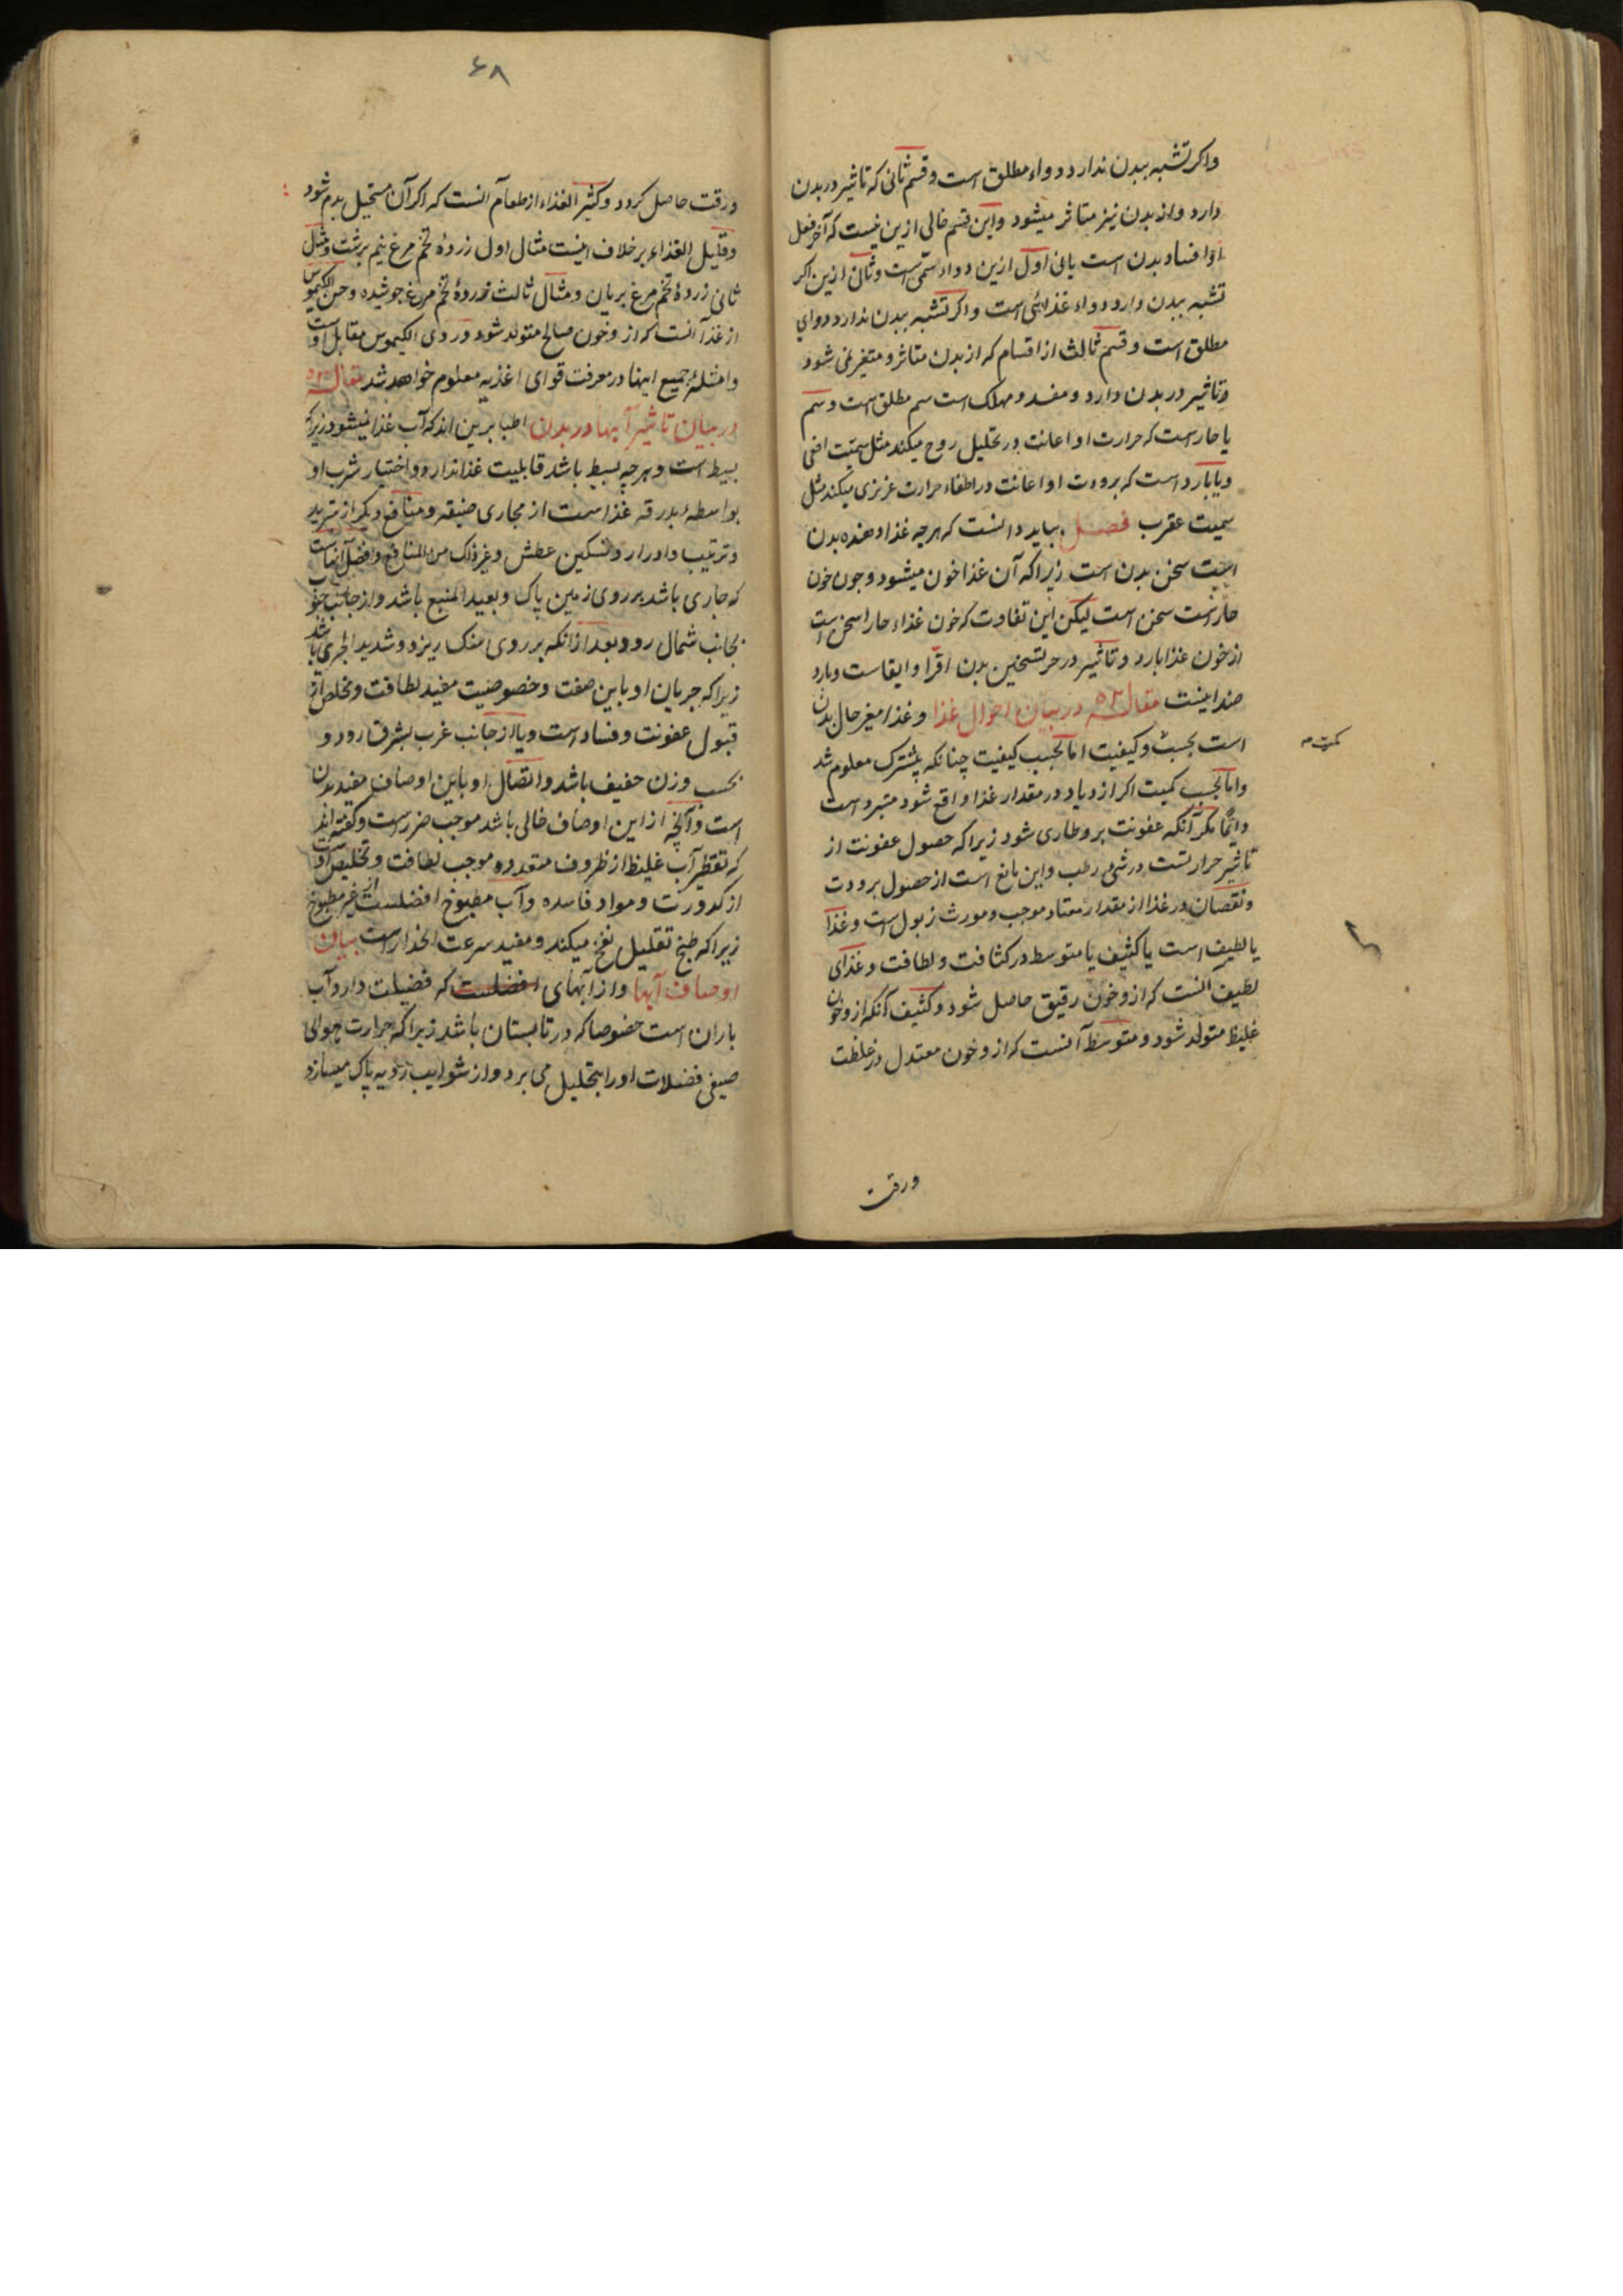 واکر تشبه ببدن ندارد دواء مطلق است و قسم ثانی که تاثیر در بدن
دارد و از بدن نیز متاثر میشود و این قسم خالی ازین نیست که آخر فعل
او افساد بدن است یا نی اول ازین دواء سمی است و ثانی ازین اکر
تشبه ببدن دارد دواء غذائی است و اکر تشبه ببدن ندارد دوای
مطلق است و قسم ثالث از اقسام که از بدن متاثر و متغیر نمی شود
و تاثیر در بدن دارد و مفسد و مهلک است سم مطلق است و سم
یا حار است که حرارت او اعانت در تحلیل روح میکند مثل سمیت افعی
و یا بارد است که برودت او اعانت در اطفاء حرارت غریزی میکند مثل
سمیت عقرب فصل بباید دانست که هر چه غذا دهنده بدن
است سخن بدن است زیرا که آن غذا خون میشود و چون خون
حار است سخن است لیکن این تفاوت که خون غذاء حار اسخن است
از خون غذا بارد و تاثیر در حر تسخین بدن اقرا و ابقاست و بارد
ضد اینست مقاله ۵۲ در بیان احوال غذا و غذا مغیر حال بدن
است بحسب و کیفیت اما بحسب کیفیت چنانکه پیشترک معلوم شد
کمیت م
و اما بحسب کمیت اکر ازدیاد در مقدار غذا واقع شود مبرد است
دائما مکر آنکه عفونت برو طاری شود زیرا که حصول عفونت از
تاثیر حرارتست در شی رطب و این مانع است از حصول برودت
و نقصان در غذا از مقدار معتاد موجب و مورث زبول است و غذا
یا لطیف است یا کثیف یا متوسط در کثافت و لطافت و غذای
لطیف آنست که ازو خون رقیق حاصل شود و کثیف آنکه ازو خون
غلیظ متولد شود و متوسط آنست که ازو خون معتدل در غلظت
ورقت
۶۸
ورقت حاصل کردد و کثیر الغذاء از طعام آنست که اکر آن مستحیل بدم شود
و قلیل الغذاء بر خلاف اینست مثال اول زردهٔ تخم مرغ نیم برشت و مثل
ثانی زردهٔ تخم مرغ بریان و مثال ثالث زردهٔ تخم مرغ جوشیده و حسن الکیموس
از غذا آنست که ازو خون صالح متولد شود و ردی الکیموس مقابل اوست
و امثلهٔ جمیع اینها در معرفت قوای اغذیه معلوم خواهد شد مقاله ۵۳
در بیان تاثیر آبها در بدن اطبا برین اند که آب غذا نمیشود زیرا که
بسیط است و هر چه بسیط باشد قابلیت غذا ندارد و اختیار شرب او
بواسطه بدرقه غذاست از مجاری ضیقه و منافع دیکر از تبرید
و ترتیب و ادرار و تسکین عطش و غیر ذلک من المنافع و افضل آنهاست
که جاری باشد بر روی زمین پاک و بعید المنبع باشد و از جانب جنوب
بجانب شمال رود بعد از انکه بر روی سنک ریزد و شدید الجری باشد
زیرا که جریان او باین صفت و خصوصیت مفید لطافت و مخلص از
قبول عفونت و فساد است و یا از جانب غرب بشرق رود و
بحسب وزن خفیف باشد و اتصال او باین اوصاف مفید بدن
است و آنچه از این اوصاف خالی باشد موجب ضرر است و کفته اند
که تقطیر آب غلیظ از ظروف متعدده موجب لطافت و تخلیص اوست
از کدورت و مواد فاسده و آب مطبوخ افضلست از غیر مطبوخ
زیرا که طبخ تقلیل نفخ میکند و مفید سرعت انحدار است بیان
اوصاف آبها و از آبهای افضلست که فضیلت دارد آب
باران است خصوصا که در تابستان باشد زیرا که حرارت هوای
صیفی فضلات او را بتحلیل می برد و از شوایب ردیه پاک میسازد